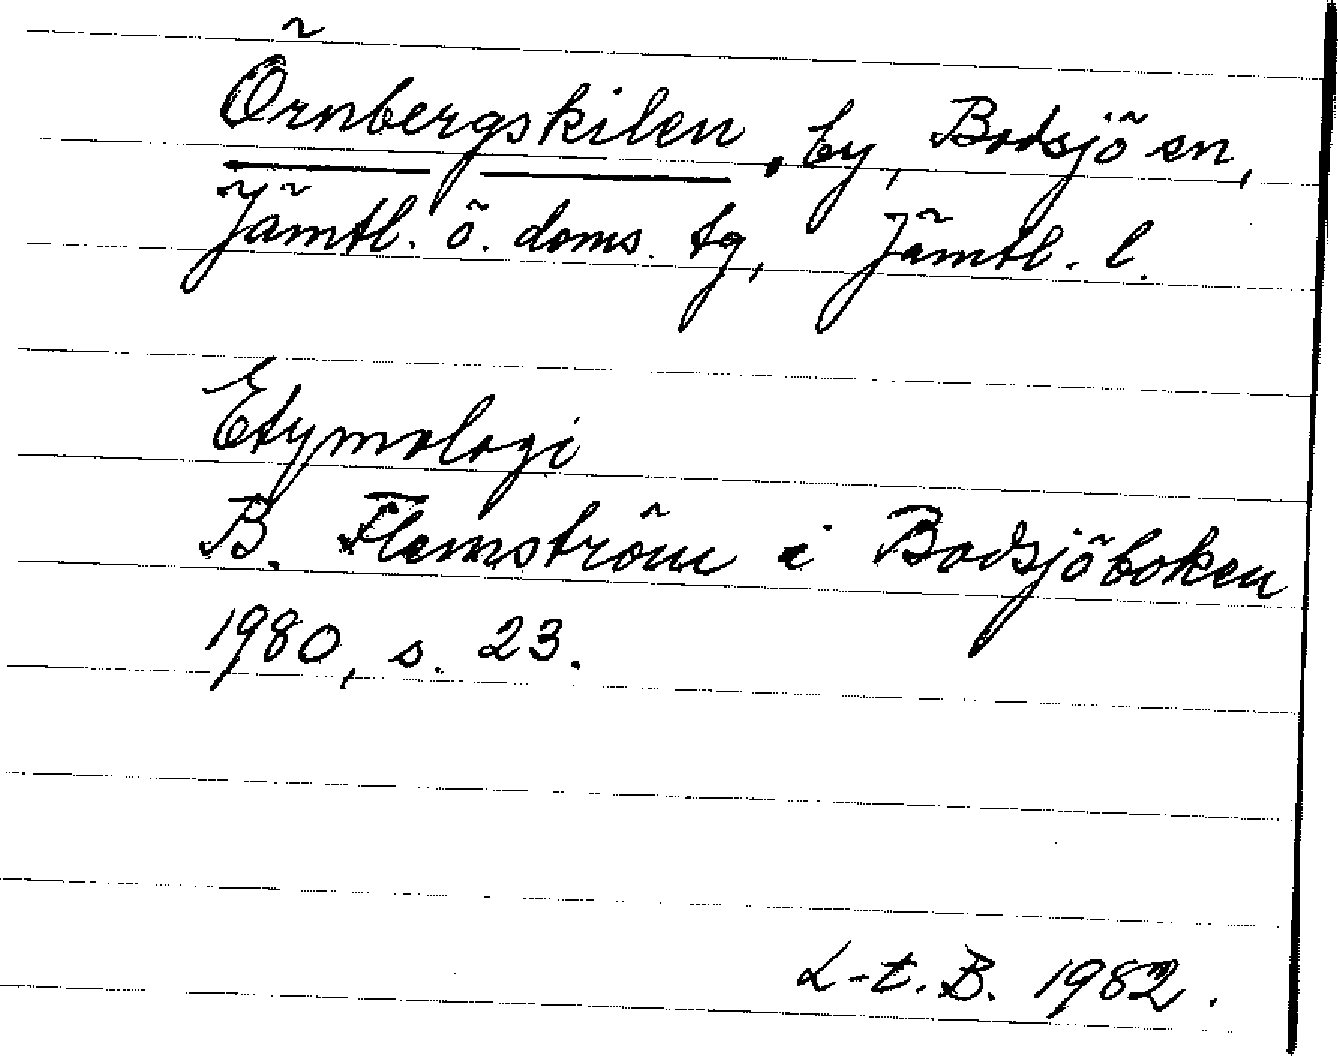 Örnbergskilen, by, Bodsjö sn,
Jämtl. ö. doms. tg, Jämtl. l.
Etymologi
B. Flemström i Bodsjöboken
1980, s. 23.
L-t. B. 1982.